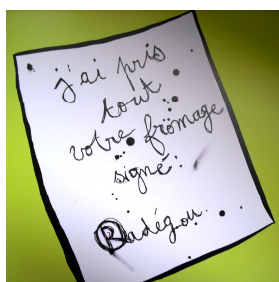 J'ai pris
tout
votre fromage
signé :
Radégou.